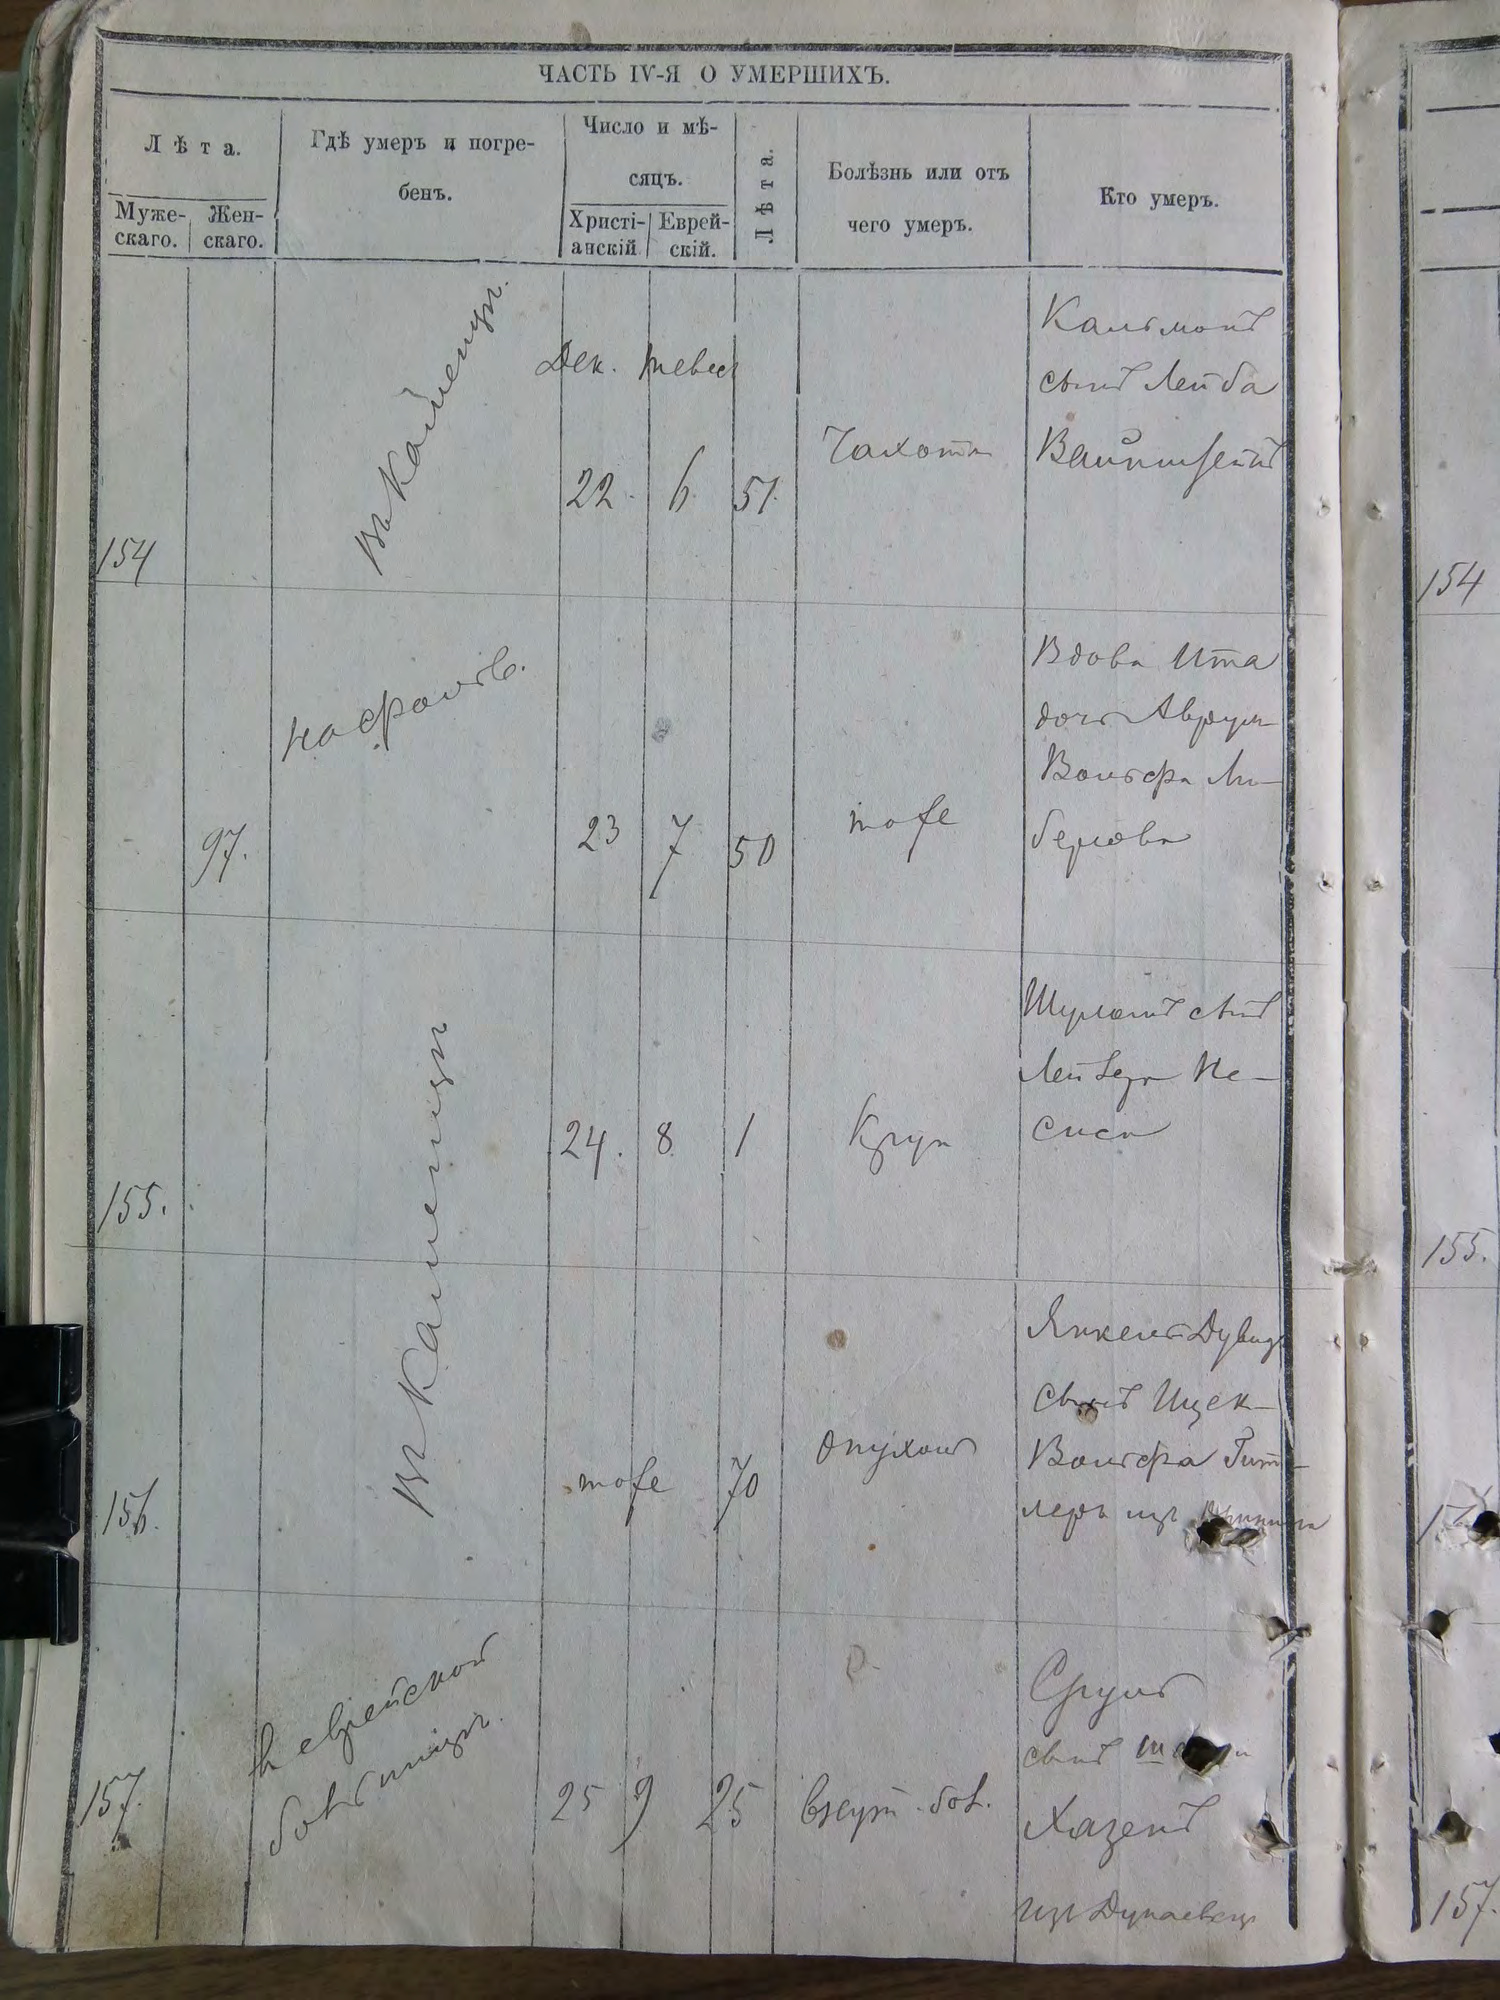 ЧАСТЬ IV-Я О УМЕРШИХЪ.
Лѣта.
Муже-
скаго.
Жен-
скаго.
Гдѣ умеръ и погре-
бенъ.
Число и мѣ-
сяцъ.
Христі-
анскій
Еврей-
скій.
Лѣта.
Болѣзнь или отъ
чего умеръ.
Кто умеръ.
154
въ Каменцѣ.
Дек.
22.
6
51
Чахотка
Кальманъ
сынъ Лейба
97.
23
7
50
тоже
Вдова Ита
дочь Аврум
Вольфа Ли-
берова
155.
въ Каменцѣ
24.
8
1
Крупъ
сынъ
Лейзера Не-
сиса
156.
тоже
70
опухоль
Янкель Дувид
сынъ Ицек-
Вольфа Гит-
леръ изъ
157.
в еврейской
больницѣ.
25
9
25
внут. бол.
Сруль
сынъ
Хазенъ
изъ Дунаевец
154
155.
157.